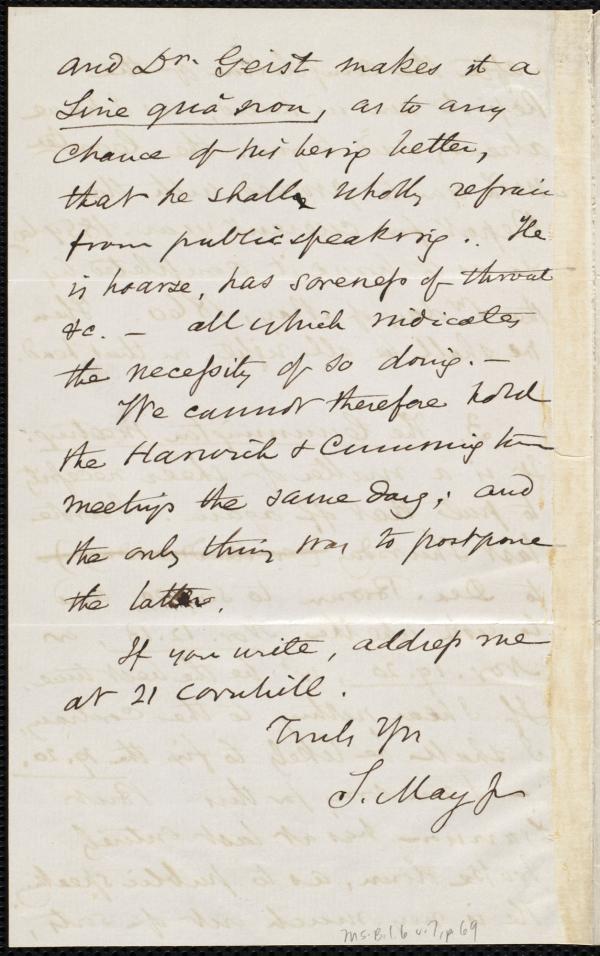 and Dr. Geist makes it a
Sine quâ non, as to any
chance of his being better,
that he shall wholly refrain
from public speaking.. He
is hoarse, has soreness of throat
&c. – all which indicates
the necessity of so doing. –
We cannot therefore hold
the Harwich & Cummington
meetings the same days; and
the only thing was to postpone
the latter.
If you write, address me
at 21 Cornhill.
Truly Yrs
S. May Jr
Ms.B.1.6 v.7, p.69